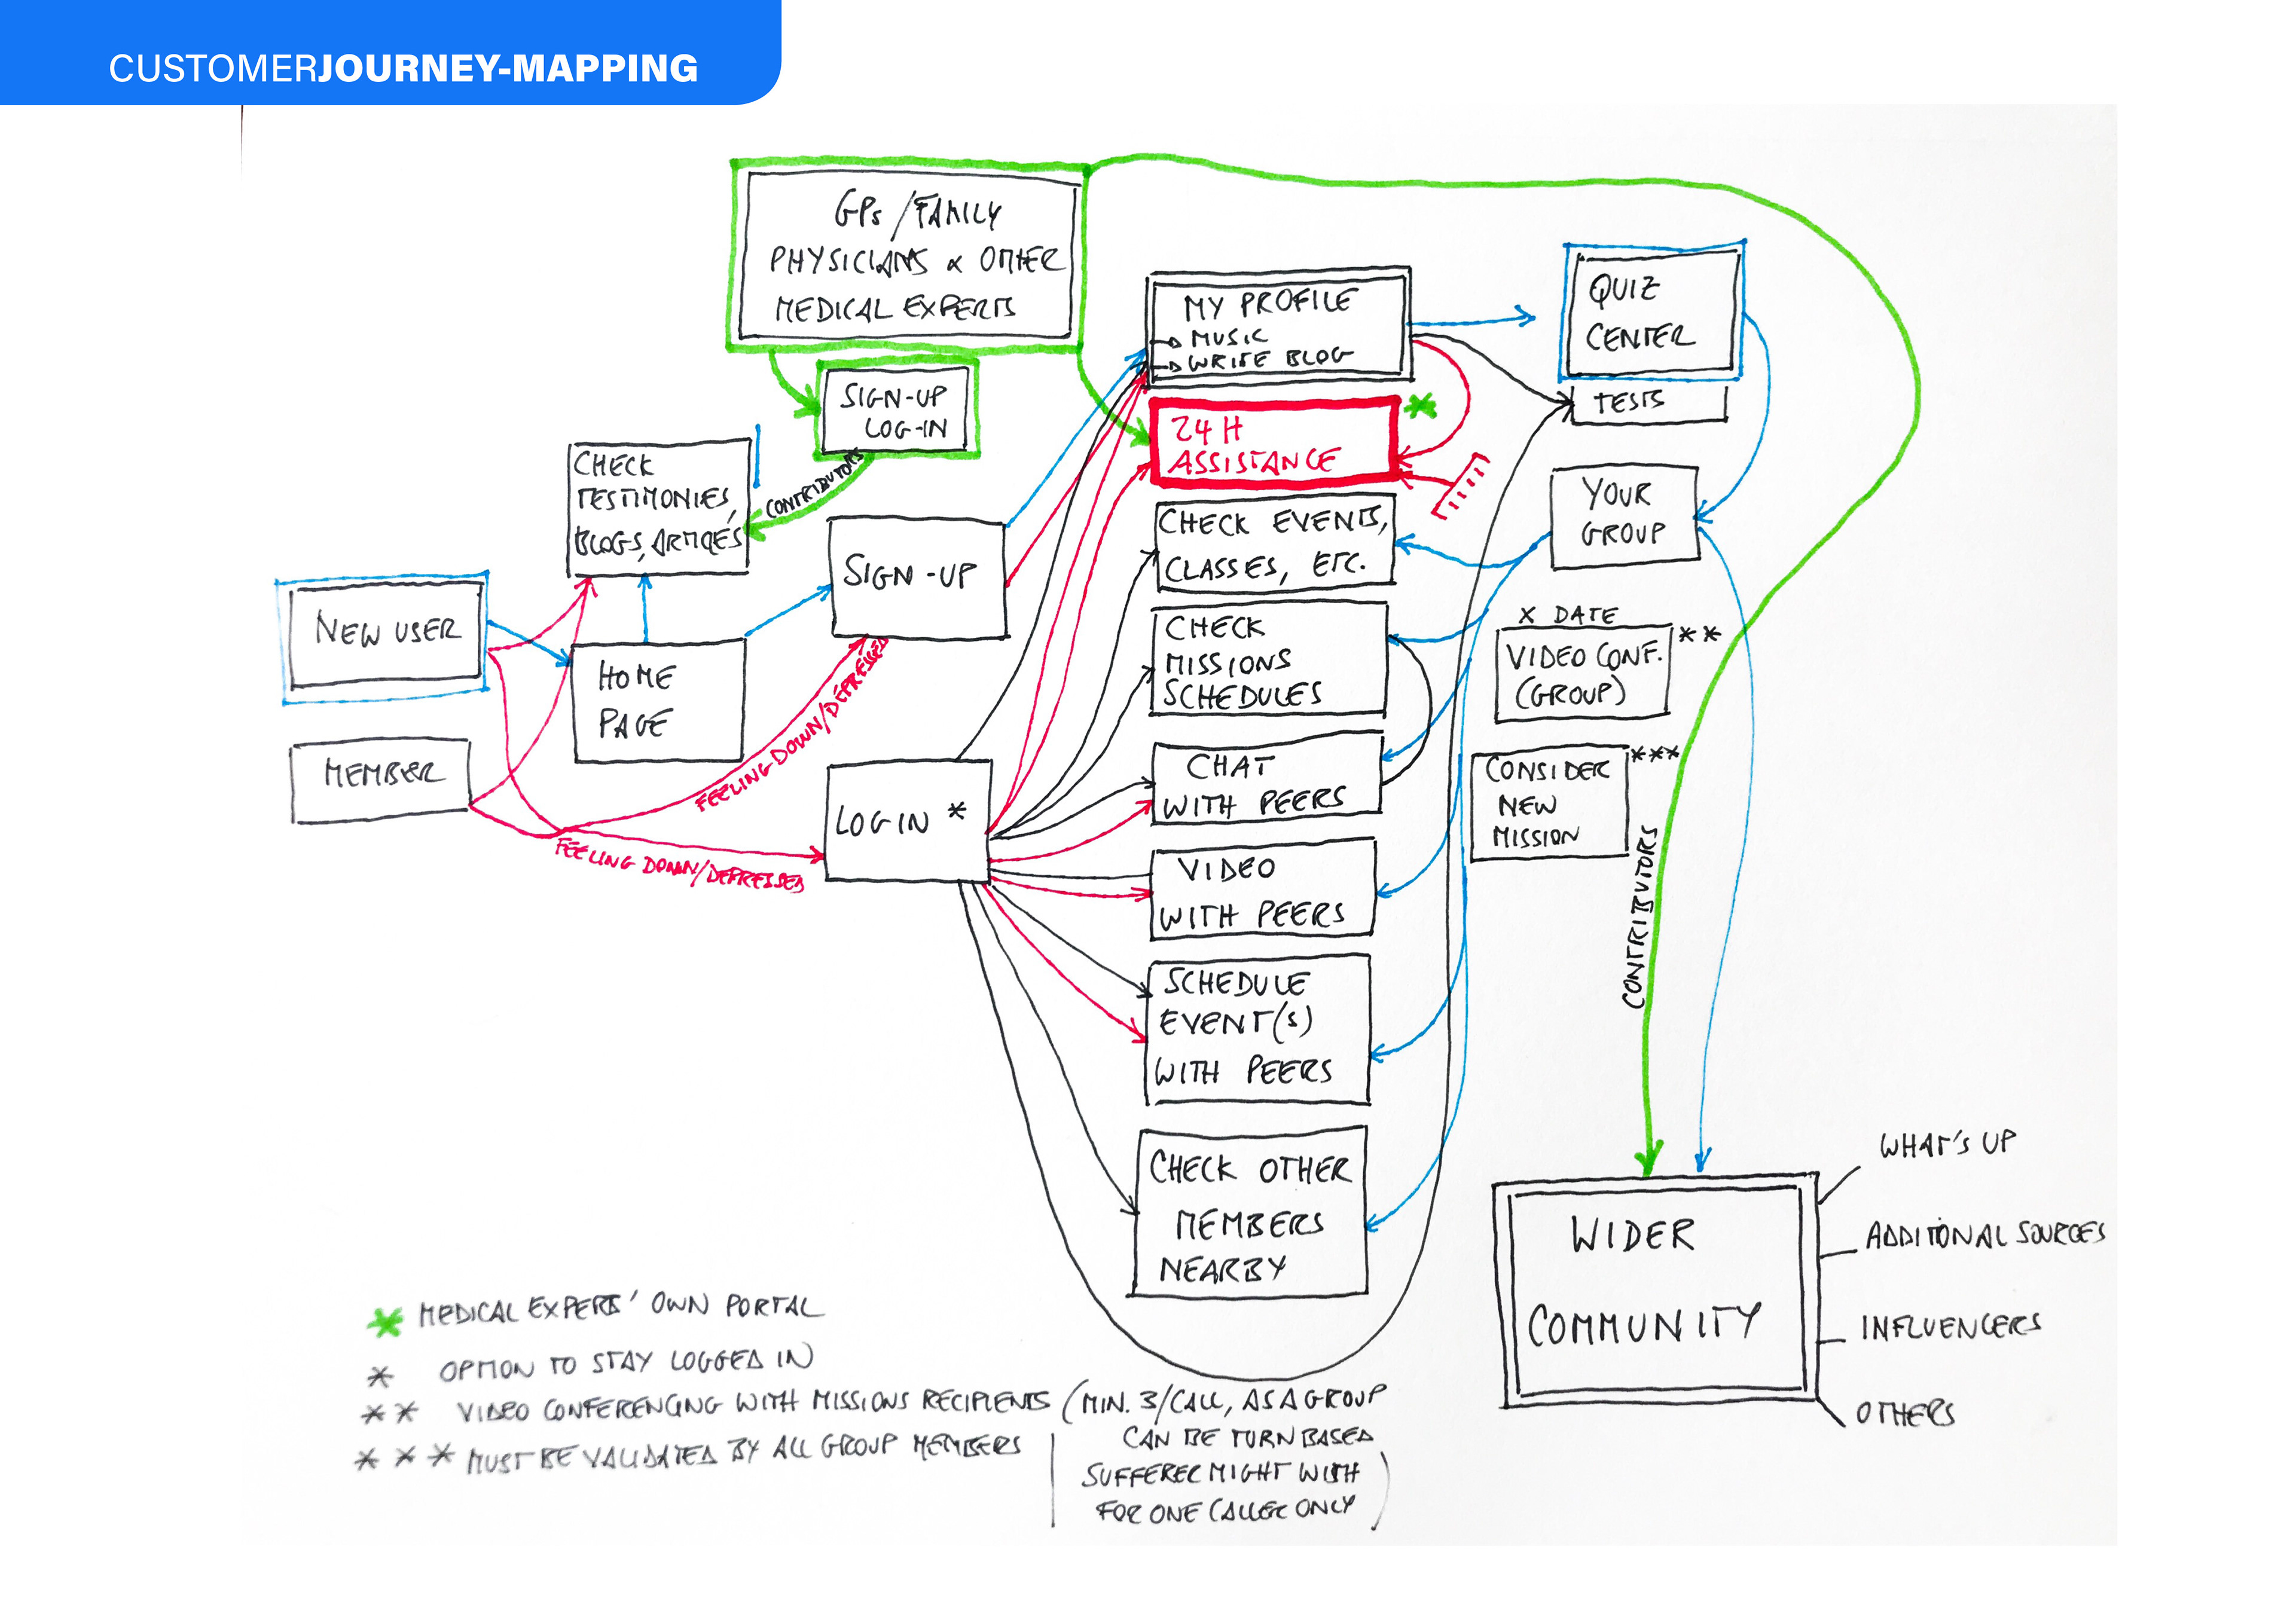 CUSTOMERJOURNEY-MAPPING
GPs/FAMILY
PHYSICIANS & OTHER
MEDICAL EXPERTS
SIGN-UP
LOG-IN
CONTRIBUTORS
CHECK
TESTIMONIES,
BLOGS, ARTICLES
NEW USER
HOME
PAGE
MEMBER
SIGN-UP
FEELING DOWN/DEPRESSED
FEELING DOWN/DEPRESSED
LOGIN *
MY PROFILE
→ MUSIC
→ WRITE BLOG
24H
ASSISTANCE
CHECK EVENTS,
CLASSES, ETC.
CHECK
MISSIONS
SCHEDULES
CHAT
WITH PEERS
VIDEO
WITH PEERS
SCHEDULE
EVENT(S)
WITH PEERS
CHECK OTHER
MEMBERS
NEARBY
QUIZ
CENTER
TESTS
YOUR
GROUP
X DATE
VIDEO CONF. **
(GROUP)
CONSIDER ***
NEW
MISSION
CONTRIBUTORS
WIDER
COMMUNITY
WHAT'S UP
ADDITIONAL SOURCES
INFLUENCERS
OTHERS
* MEDICAL EXPERTS' OWN PORTAL
* OPTION TO STAY LOGGED IN
** VIDEO CONFERENCING WITH MISSIONS RECIPIENTS (MIN. 3/CALL, AS A GROUP
CAN BE TURN BASED
SUFFERER MIGHT WISH
FOR ONE CALLER ONLY)
*** MUST BE VALIDATED BY ALL GROUP MEMBERS